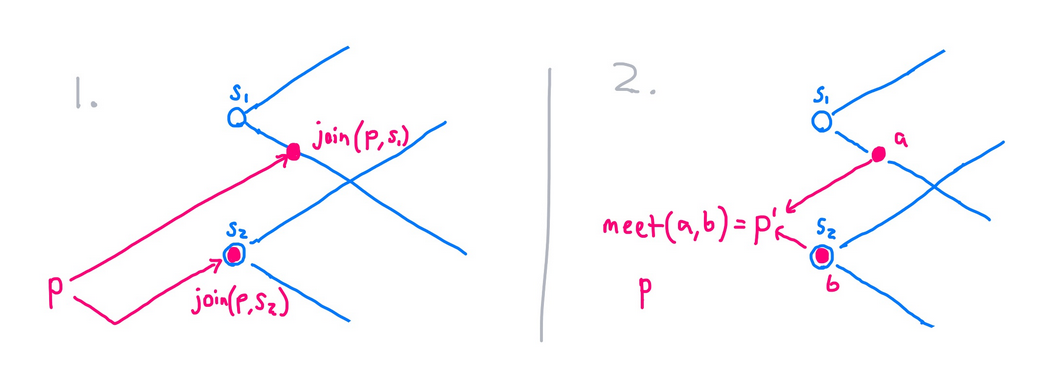 1.
s₁
join(p,s₁)
s₂
p
join(p,s₂)
2.
s₁
a
meet(a,b)=p'
s₂
b
p